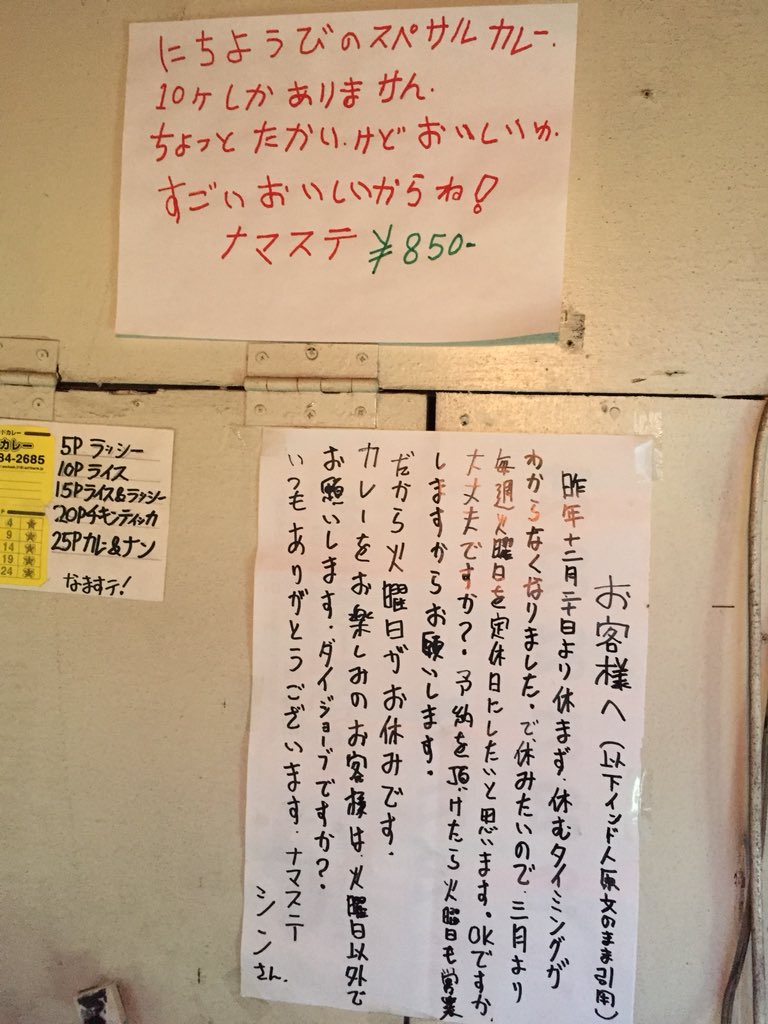 にちようびのスペサルカレー.
10ヶしかありません.
ちょっとたかい.けどおいしいゆ.
すごいおいしいからね!
ナマステ ¥850-
カレー
84-2685
4 ★
9 ★
14 ★
19 ★
24 ★
5P ラッシー
10P ライス
15Pライス&ラッシー
20Pチキンティッカ
25Pカレー&ナン
なますテ!
お客様へ(以下インド人原文のまま引用)
昨年十二月二十日より休まず、休むタイミングが
わからなくなりました。で、休みたいので、三月より
毎週火曜日を定休日にしたいと思います。OKですか、
大丈夫ですか?。予約を頂けたら火曜日も営業
しますからお願いします。
だから火曜日がお休みです.
カレーをお楽しみのお客様は、火曜日以外で
お願いします.ダイジョーブですか?
いつもありがとうございます.ナマステ
シンさん.